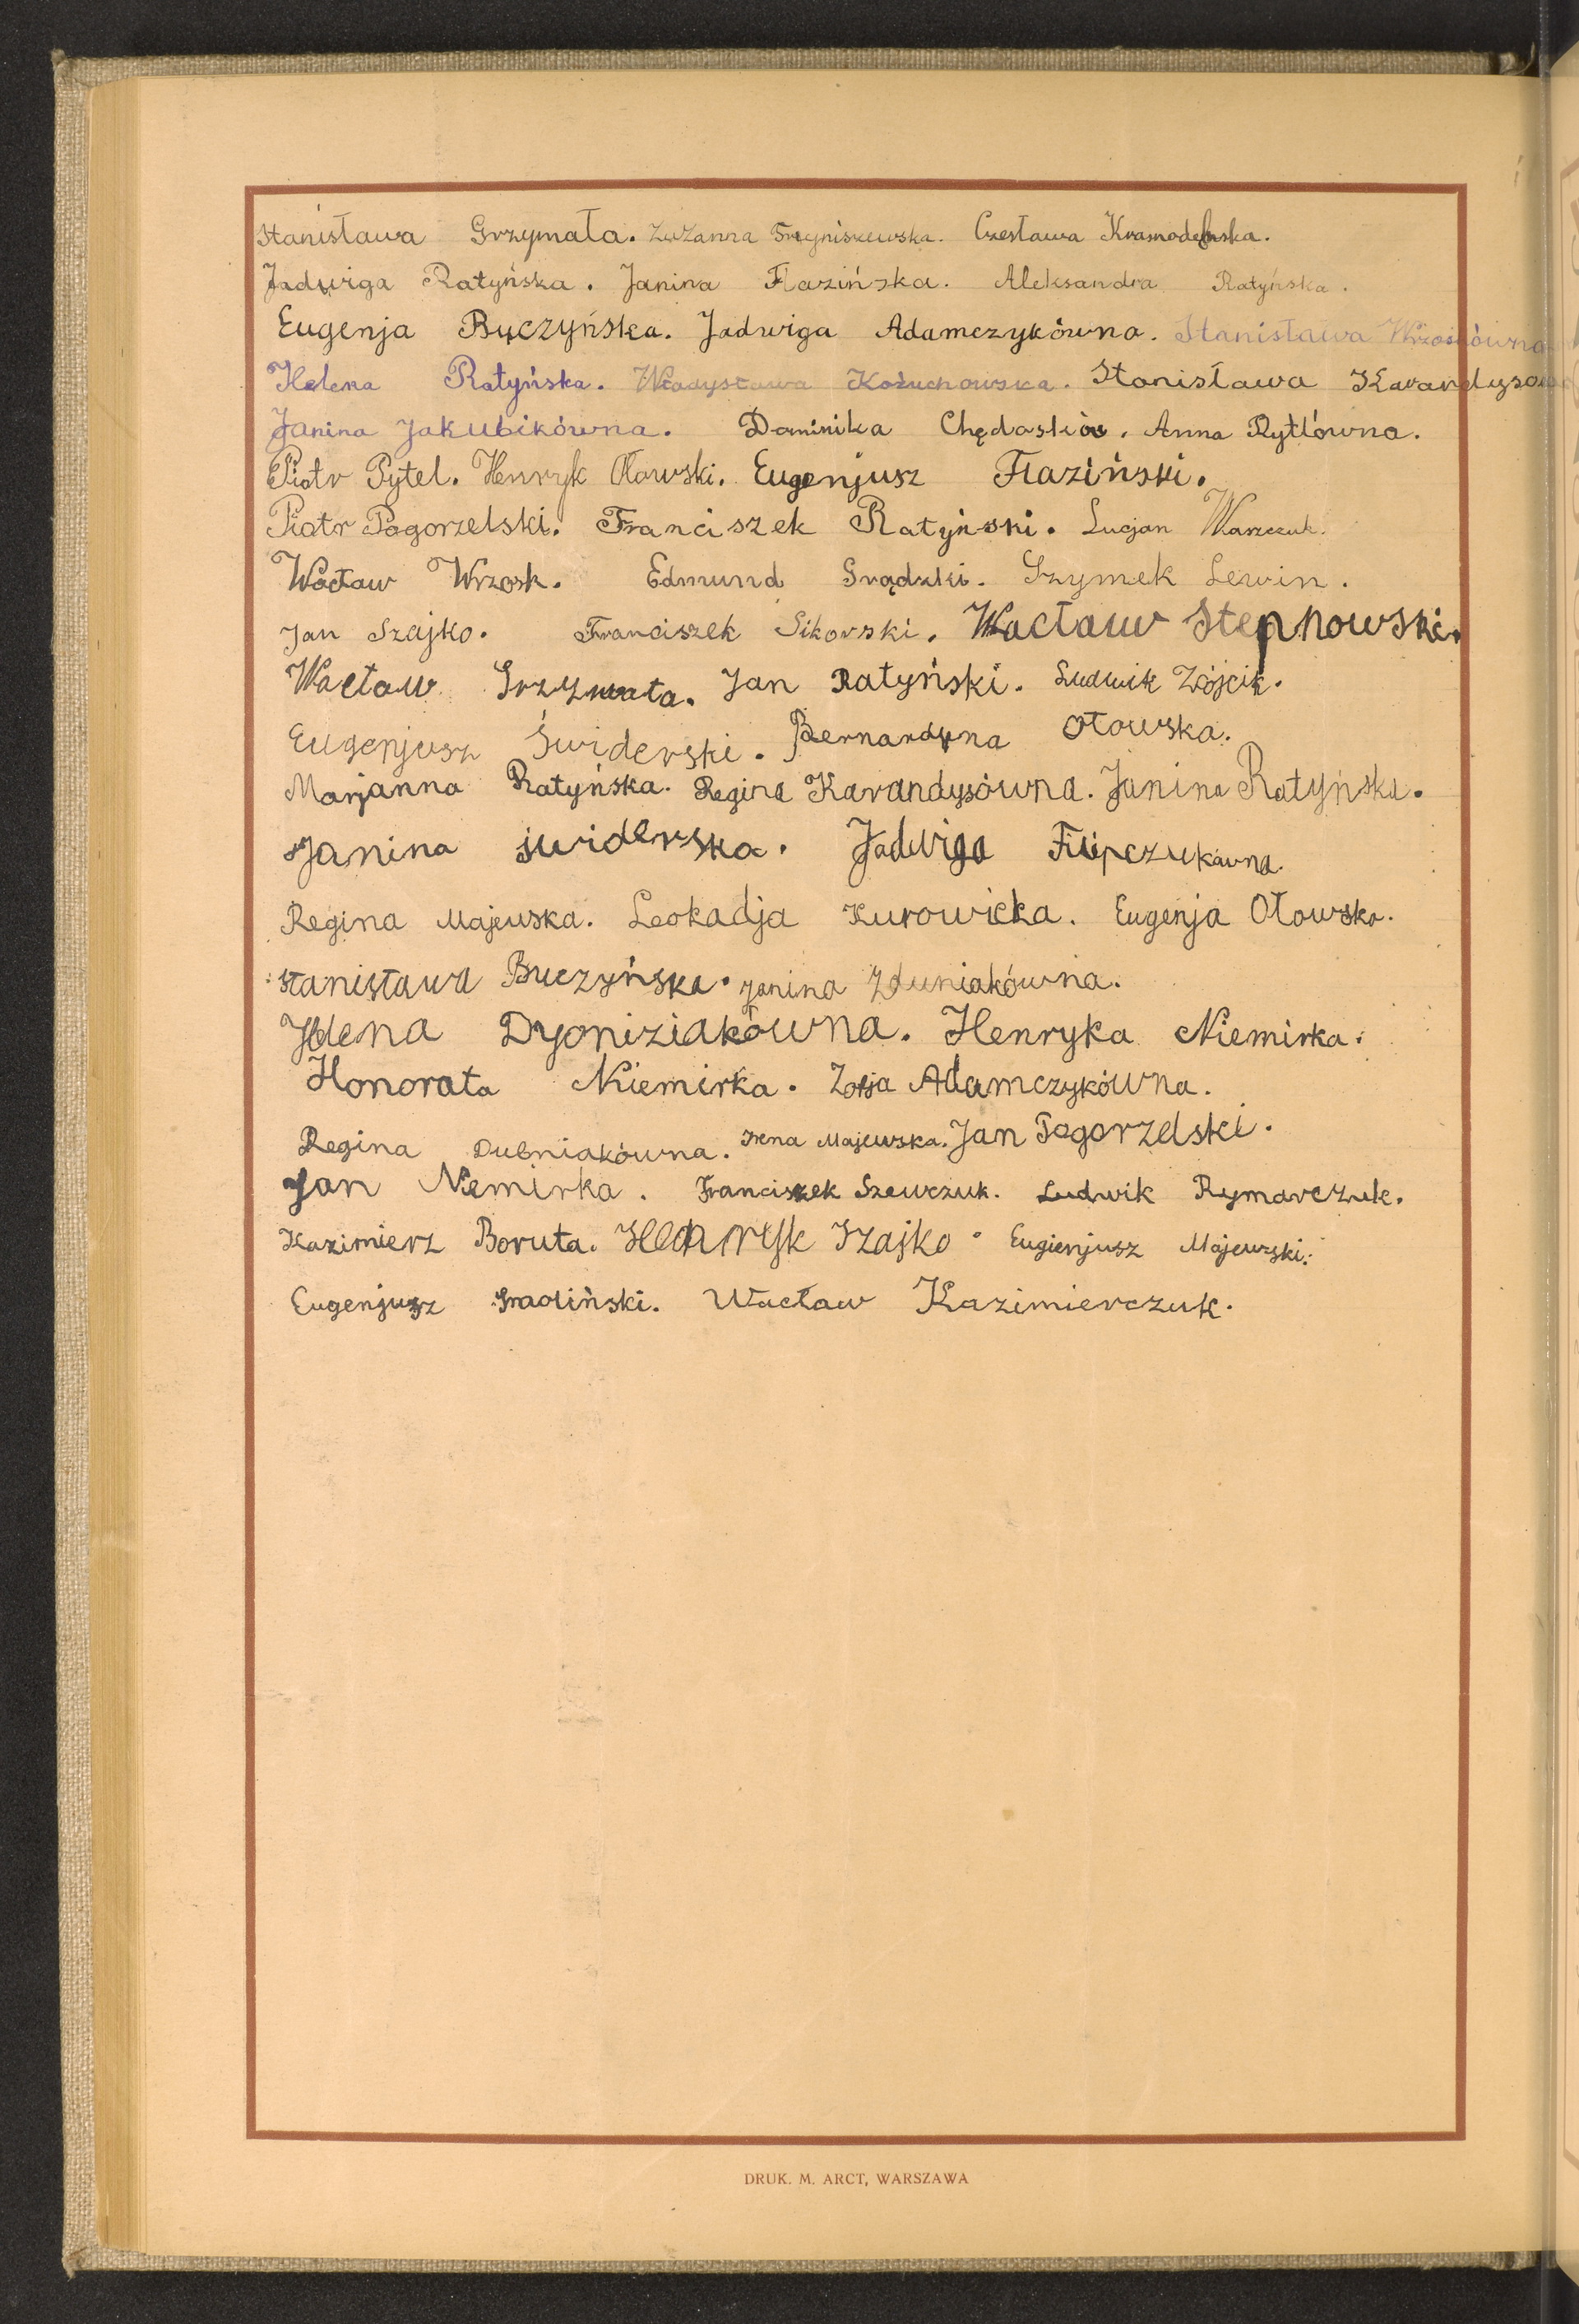 Stanisława Grzymała. Zuzanna Trzyniszewska. Czesława Krasnodębska.
Jadwiga Ratyńska. Janina Flazińska. Aleksandra Ratyńska.
Eugenja Buczyńska. Jadwiga Adamczykówna. Stanisława Wrzoskówna
Helena Ratyńska. Władysława Kożuchowska. Stanisława Karandyso
Janina Jakubikówna. Dominika Anna Rytlówna.
Piotr Pytel. Henryk Ołowski. Eugenjusz Flaziński.
Piotr Pogorzelski. Franciszek Ratyński. Lucjan Warzczuk.
Wacław Wrzosk. Edmund Grądzki. Szymek Lewin.
Jan Szajko. Franciszek Sikorski. Wacław Stepnowski.
Wacław Grzymała. Jan Ratyński. Ludwik Zójcik.
Eugenjusz Świderski. Bernardyna Ołowska.
Marjanna Ratyńska. Regina Karandysówna. Janina Ratyńska.
Janina Świderska. Jadwiga Filipczukówna.
Regina Majewska. Leokadja Kurowicka. Eugenja Ołowska.
Stanisława Buczyńska. Janina Zduniakówna.
Helena Dyoniziakówna. Henryka Niemirka.
Honorata Niemirka. Zofja Adamczykówna.
Regina Dubniakówna. Irena Majewska. Jan Pogorzelski.
Jan Niemirka. Franciszek Szewczuk. Ludwik Rymarczuk.
Kazimierz Boruta. Henryk Szajko. Eugienjusz Majewski.
Eugenjusz Wacław Kazimierczuk.
DRUK. M. ARCT, WARSZAWA